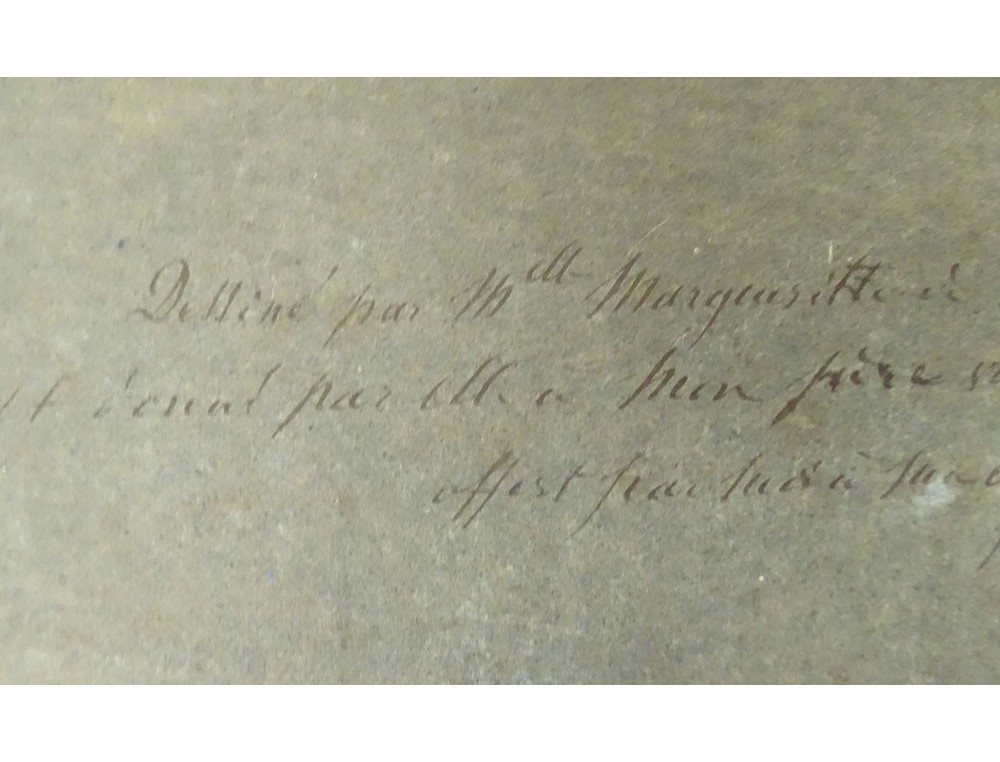 Dessiné par Melle Margueritte à
et donné par elle à mon frère
offert par moi à ma